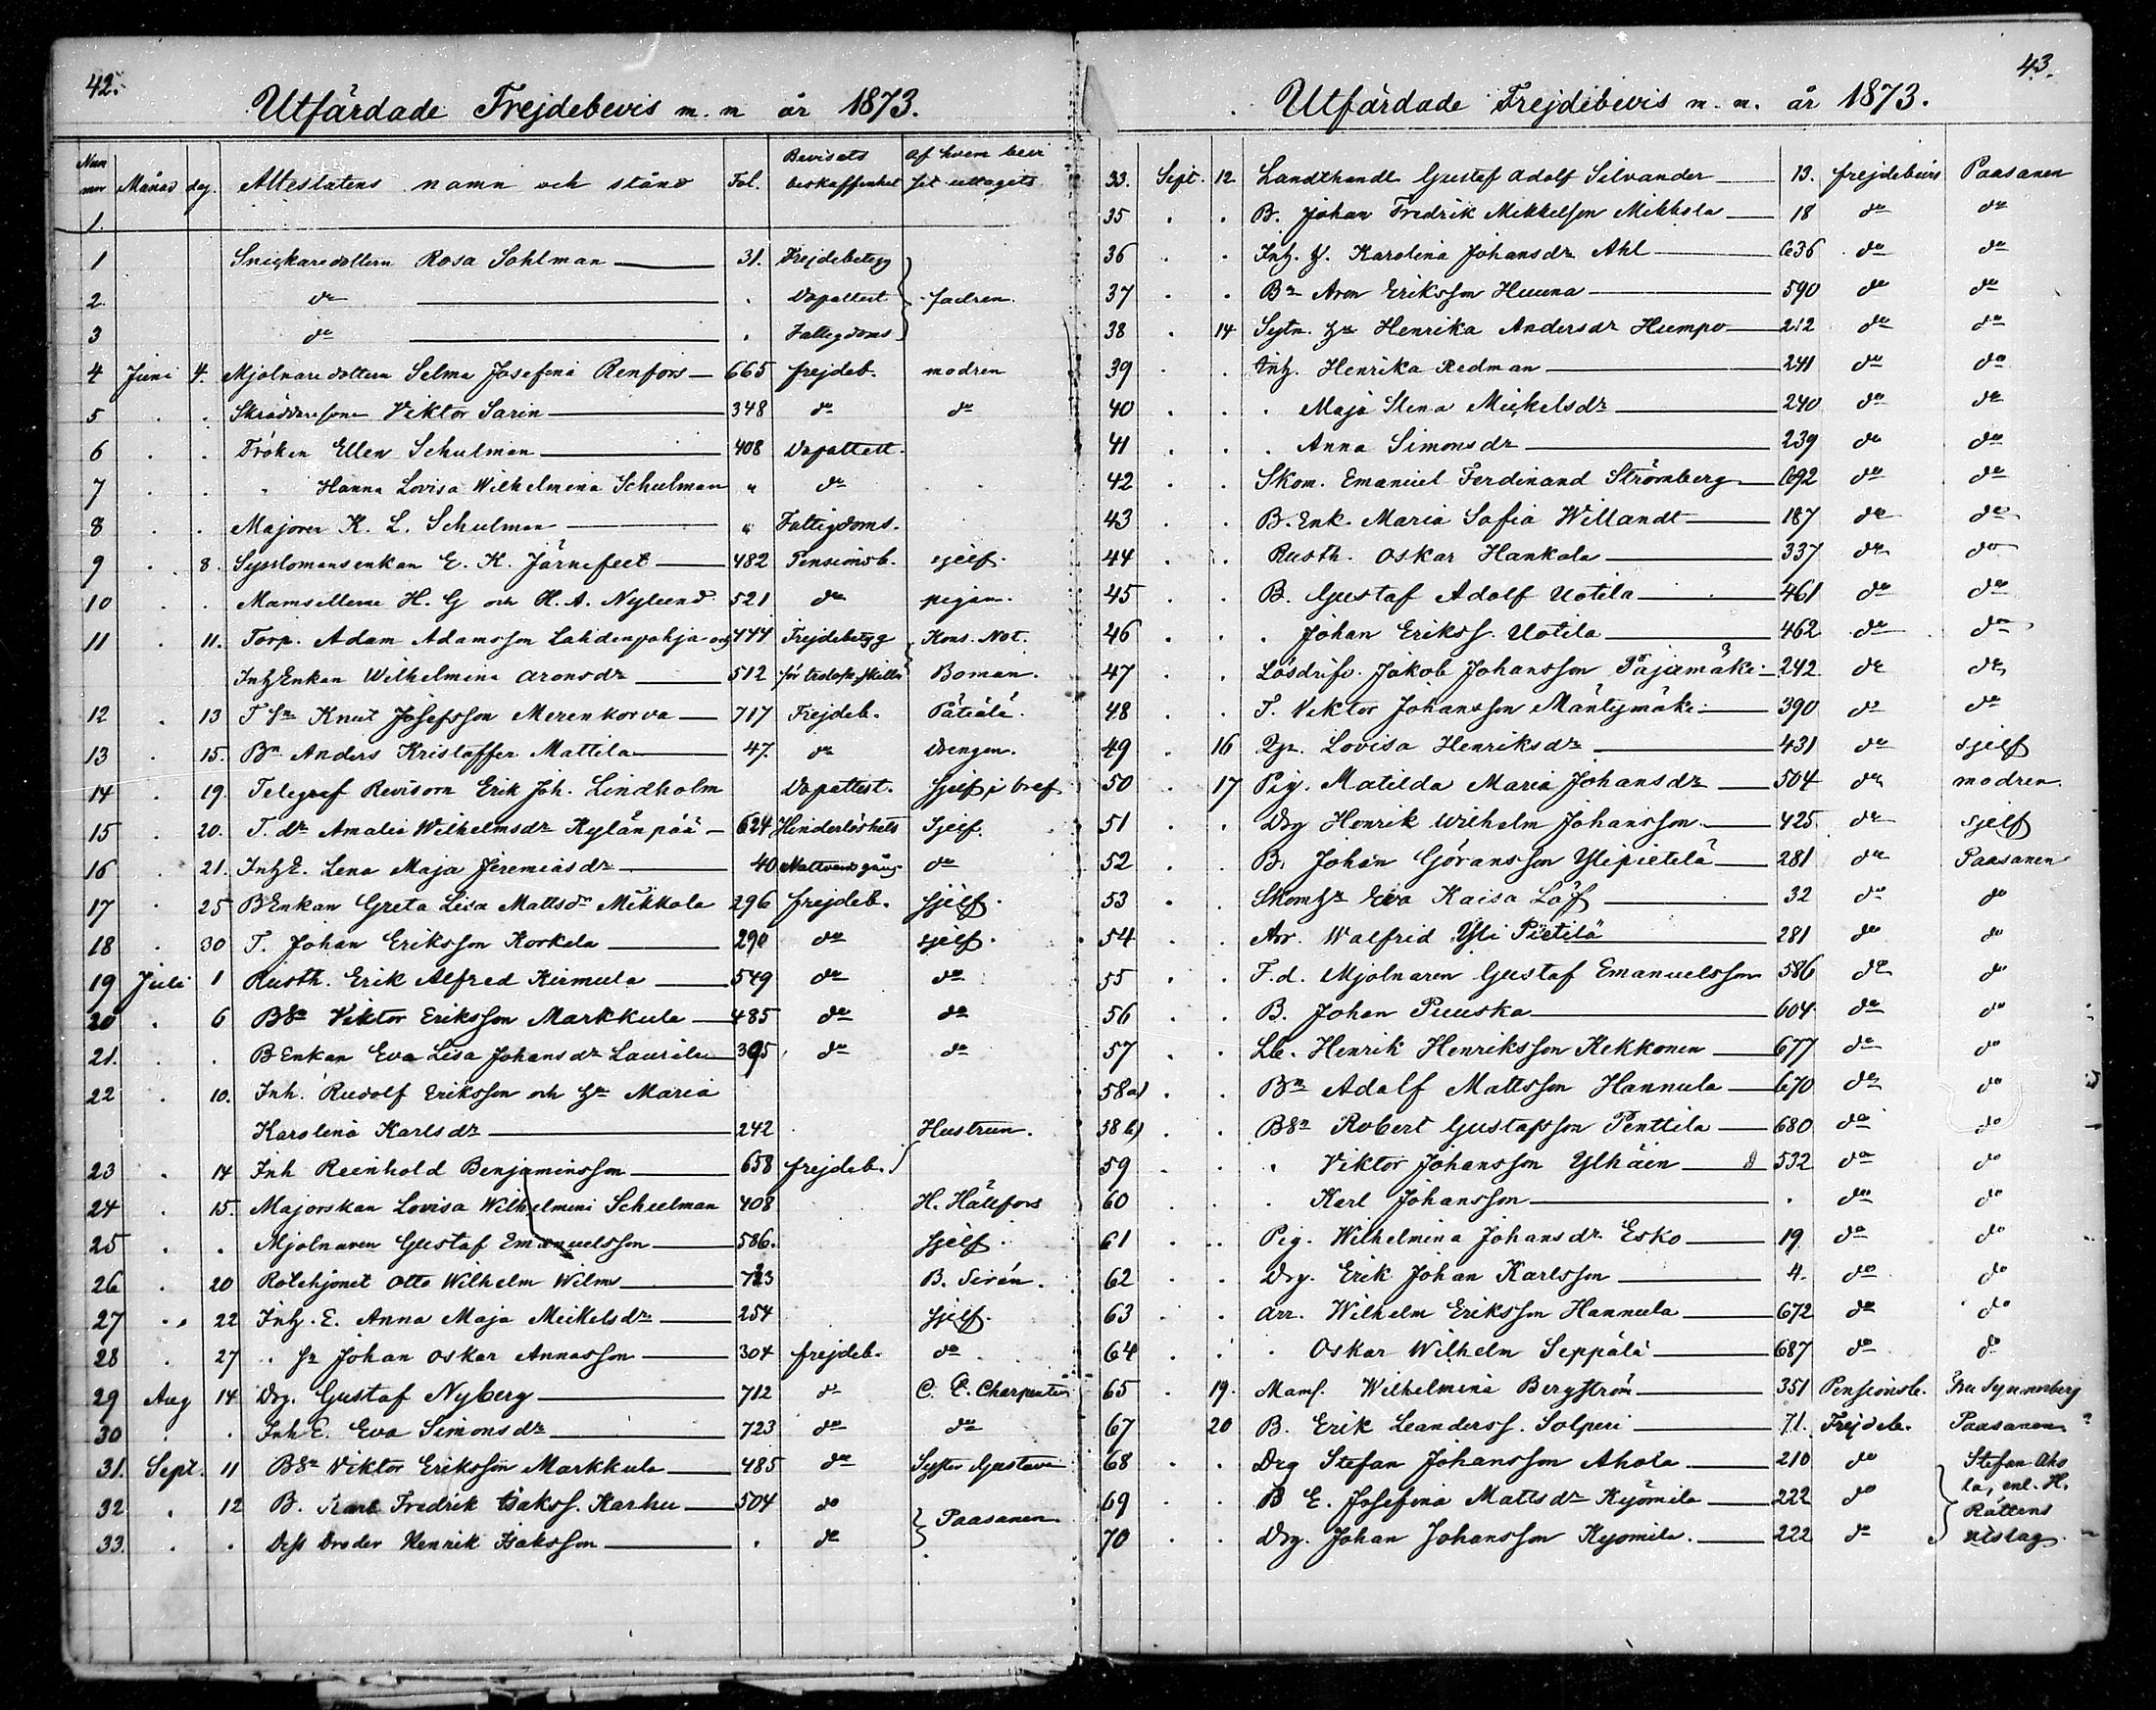 42.
Utfärdade Frejdebevis m. m år 1873.
Num mer Månad dag. Attestatens namn och stånd Fol. Bevisets beskaffenhet af hvem bevi set uttagits
1.
1 Snickaredottern Rosa Sahlman 31. Frejdebetyg
2 do . Dopattest fadren.
3 do . Fattigdoms
4 Juni 4. Mjölnaredottern Selma Josefina Renfors 665 frejdeb. modren
5 . . Skräddaresonen Viktor Sarin 348 do do
6 . . Fröken Ellen Schulman 408 Dopattest.
7 . . " Hanna Lovisa Wilhelmina Schulman " do
8 . . Majoren K. L. Schulman " Fattigdoms.
9 . 8. Sysslomansenkan E. H. Järnefelt 482 Pensionsb. sjelf.
10 . . Mamsellerne H. G och H. A. Nylund 521 do pigan.
11 . 11. Torp. Adam Adamsson Lahdenpohja och 444 Frejdebetyg Kons. Not.
Inh Enkan Wilhelmina Aronsdr 512 för trolof. skilln Boman.
12 . 13 T Sn Knut Josefsson Merenkorva 717 Frejdeb. Pätiälä.
13 . 15. Bn Anders Kristoffer Mattila 47. do drengen.
14 . 19. Telegraf Revisorn Erik Joh. Lindholm Dopattest. sjelf i bref
15 . 20. T. dr Amalia Wilhelmsdr Kylänpää 624 Hinderlöshets Sjelf.
16 . 21. Inh E. Lena Maja Jeremiasdr 40 Nattvardsgång do
17 . 25 B Enkan Greta Lisa Mattsdr Mikkola 296 frejdeb. sjelf.
18 . 30 T. Johan Eriksson Korkela 290 do sjelf.
19 Juli 1 Rusth. Erik Alfred Kirmula 549 do do
20 . 6 BSn Viktor Eriksson Markkula 485 do do
21. . . B Enkan Eva Lisa Johansdr Laurila 395 do do
22 . 10. Inh. Rudolf Eriksson och Hu Maria
Karolina Karlsdr 242 Hustrun.
23 . 14 Inh Reinhold Benjaminsson 658 frejdeb.
24 . 15. Majorskan Lovisa Wilhelmina Schulman 408 H. Hällfors
25 . . Mjölnaren Gustaf Emanuelsson 586. sjelf.
26 . 20 Rotehjonet Otto Wilhelm Wilms 723 B. Sirén.
27 . 22 Inh. E. Anna Maja Mickelsdr 254 sjelf.
28 . 27 " Sn Johan Oskar Annasson 304 frejdeb. do
29 Aug 14 Drg. Gustaf Nyberg 712 do C. Charpentier
30 . . Inh E. Eva Simonsdr 723 do do
31. Sept. 11 BSn Viktor Eriksson Markkula 485 do Syster Gustava
32. . 12 B. Karl Fredrik Isakss. Karhu 504 do Paasanen
33. . . Dess broder Henrik Isaksson . do
43.
Utfärdade Frejdebevis m. m. år 1873.
33. Sept. 12 Landthandl Gustaf Adolf Silvander 13. frejdebevis Paasanen
35 . . B. Johan Fredrik Mikkelson Mikkola 18 do do
36 . . Inh. H. Karolina Johansdr Ahl 636 do do
37 . . Bn Aron Eriksson Huuna 590 do do
38 . 14 Sytn. Hu Henrika Andersdr Humpo 212 do do
39 . . Inh. Henrika Redman 241 do do
40 . . . Maja Stina Mickelsdr 240 do do
41 . . . Anna Simonsdr 239 do do
42 . . Skom. Emanuel Ferdinand Strömberg 692 do do
43 . . B. Enk. Maria Sofia Willandt 187 do do
44 . . Rusth. Oskar Hankala 337 do do
45 . . B. Gustaf Adolf Uotila 461 do do
46 . . . Johan Erikss. Uotila 462 do do
47 . . Lösdrifv. Jakob Johansson Pajamäki 242 do do
48 . . T. Viktor Johansson Mäntymäki 390 do do
49 . 16 Lovisa Henriksdr 431 do sjelf
50 . 17 Pig. Matilda Maria Johansdr 504 do modren.
51 . . Drg Henrik Wilhelm Johansson 425 do sjelf
52 . . B. Johan Göransson Ylipietilä 281 do Paasanen
53 . . Skom Hu Eva Kaisa Löf 32 do do
54 . . Arr. Walfrid Yli Pietilä 281 do do
55 . . F. d. Mjölnaren Gustaf Emanuelsson 586 do do
56 . . B. Johan Puuska 604 do do
57 . . Lb. Henrik Henriksson Kekkonen 677 do do
58 a) . . Bn Adolf Mattsson Hannula 670 do do
58 b) . . BSn Robert Gustafsson Penttila 680 do do
59 . . " Viktor Johansson Ylhäin 532 do do
60 . . . Karl Johansson . do do
61 . . Pig. Wilhelmina Johansdr Esko 19 do do
62 . . Drg. Erik Johan Karlsson 4. do do
63 . . Arr. Wilhelm Eriksson Hannula 672 do do
64 . . . Oskar Wilhelm Seppälä 687 do do
65 . 19. Mams. Wilhelmina Bergström 351 Pensionsb. Fru Synnerberg
67 20 B. Erik Leanderss. Solperi 71. Frejdeb. Paasanen
68 . . Drg Stefan Johansson Ahola 210 do Stefan Aho
69 . . B E. Josefina Mattsdr Kyömila 222 do la, enl. H. Rättens
70 . . Drg. Johan Johansson Kyömila. 222 do utslag.